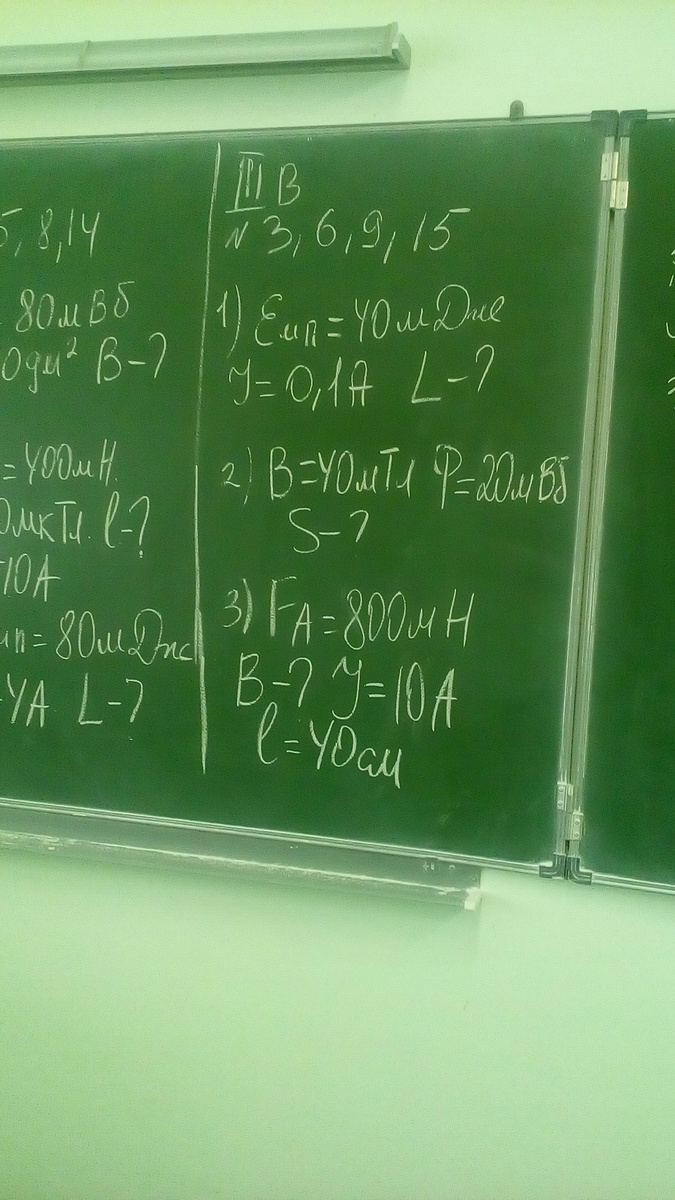 5, 8, 14
80мВб
0дм² В-?
= 400мН.
0мкТл. l-?
10А
мп = 80мДж
4А L-?
III В
№ 3, 6, 9, 15
1) Емп = 40мДж
J = 0,1А L-?
2) В = 40мТл Ф = 20мВб
S-?
3) FА = 800мН
В-? J = 10А
l = 40см